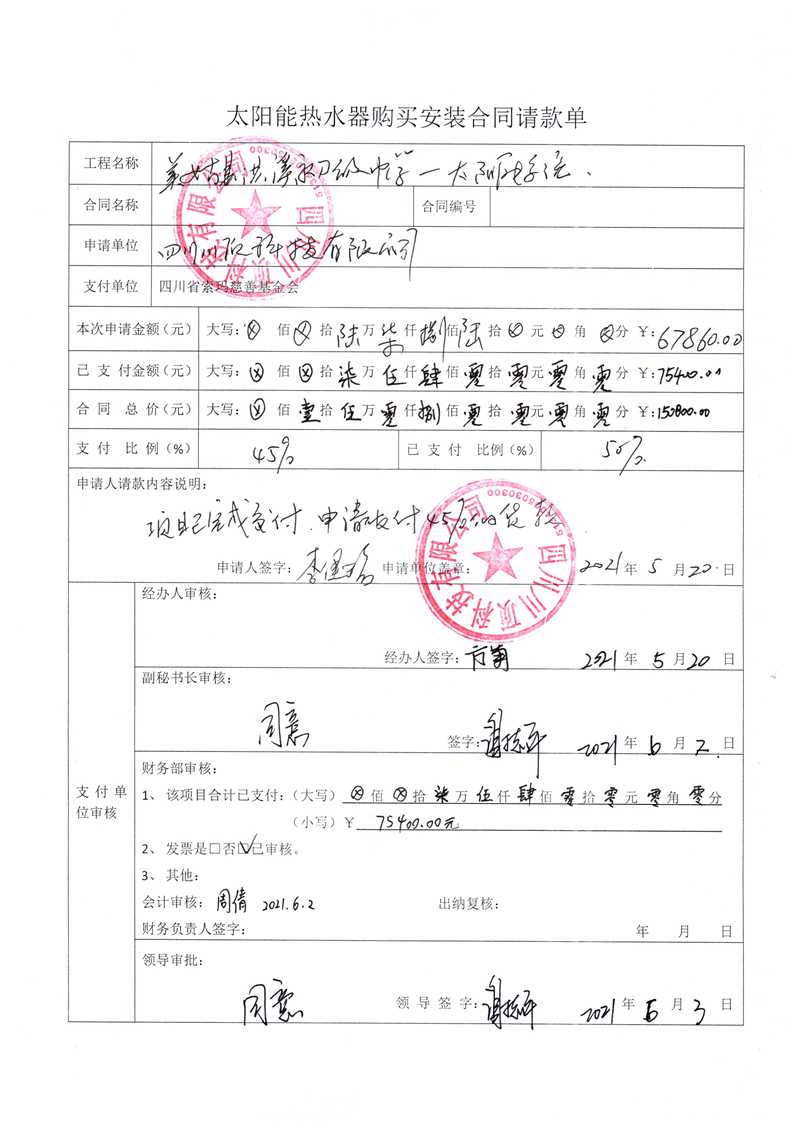 太阳能热水器购买安装合同请款单
工程名称 美姑县洪溪初级中学—太阳能
合同名称 合同编号
申请单位 四川川顶科技有限公司
支付单位 四川省索玛慈善基金会
本次申请金额（元） 大写：⊗佰⊗拾陆万柒仟捌佰陆拾⊗元⊗角⊗分 ￥：67860.00
已支付金额（元） 大写：⊗佰⊗拾柒万伍仟肆佰零拾零元零角零分 ￥：75400.00
合同总价（元） 大写：⊗佰壹拾伍万零仟捌佰零拾零元零角零分 ￥：150800.00
支付比例（%） 45% 已支付比例（%） 50%
申请人请款内容说明：
项目已完成交付，申请支付45%的货款
申请人签字： 申请单位盖章： 2021年5月20日
四川川顶科技有限公司
经办人审核：
经办人签字： 2021年5月20日
副秘书长审核：
同意
签字： 2021年6月2日
支付单位审核
财务部审核：
1、该项目合计已支付：（大写）⊗佰⊗拾柒万伍仟肆佰零拾零元零角零分
（小写）￥ 75400.00元
2、发票是□否☑已审核。
3、其他：
会计审核：周倩 2021.6.2 出纳复核：
财务负责人签字： 年 月 日
领导审批：
同意
领导签字： 2021年6月3日